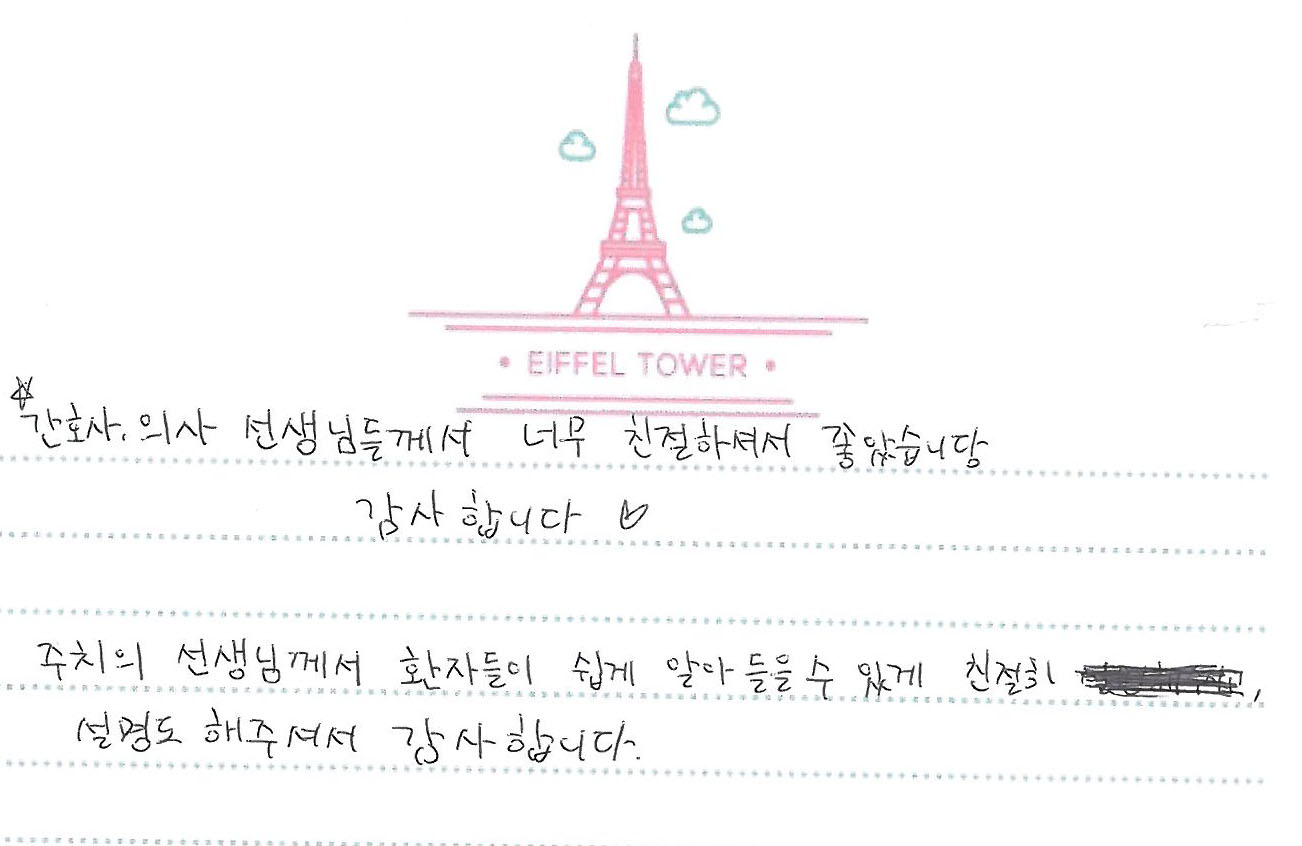 • EIFFEL TOWER •
☆간호사, 의사 선생님들께서 너무 친절하셔서 좋았습니당
감사합니다 ♡
주치의 선생님께서 환자들이 쉽게 알아 들을 수 있게 친절히 ,
설명도 해주셔서 감사합니다.